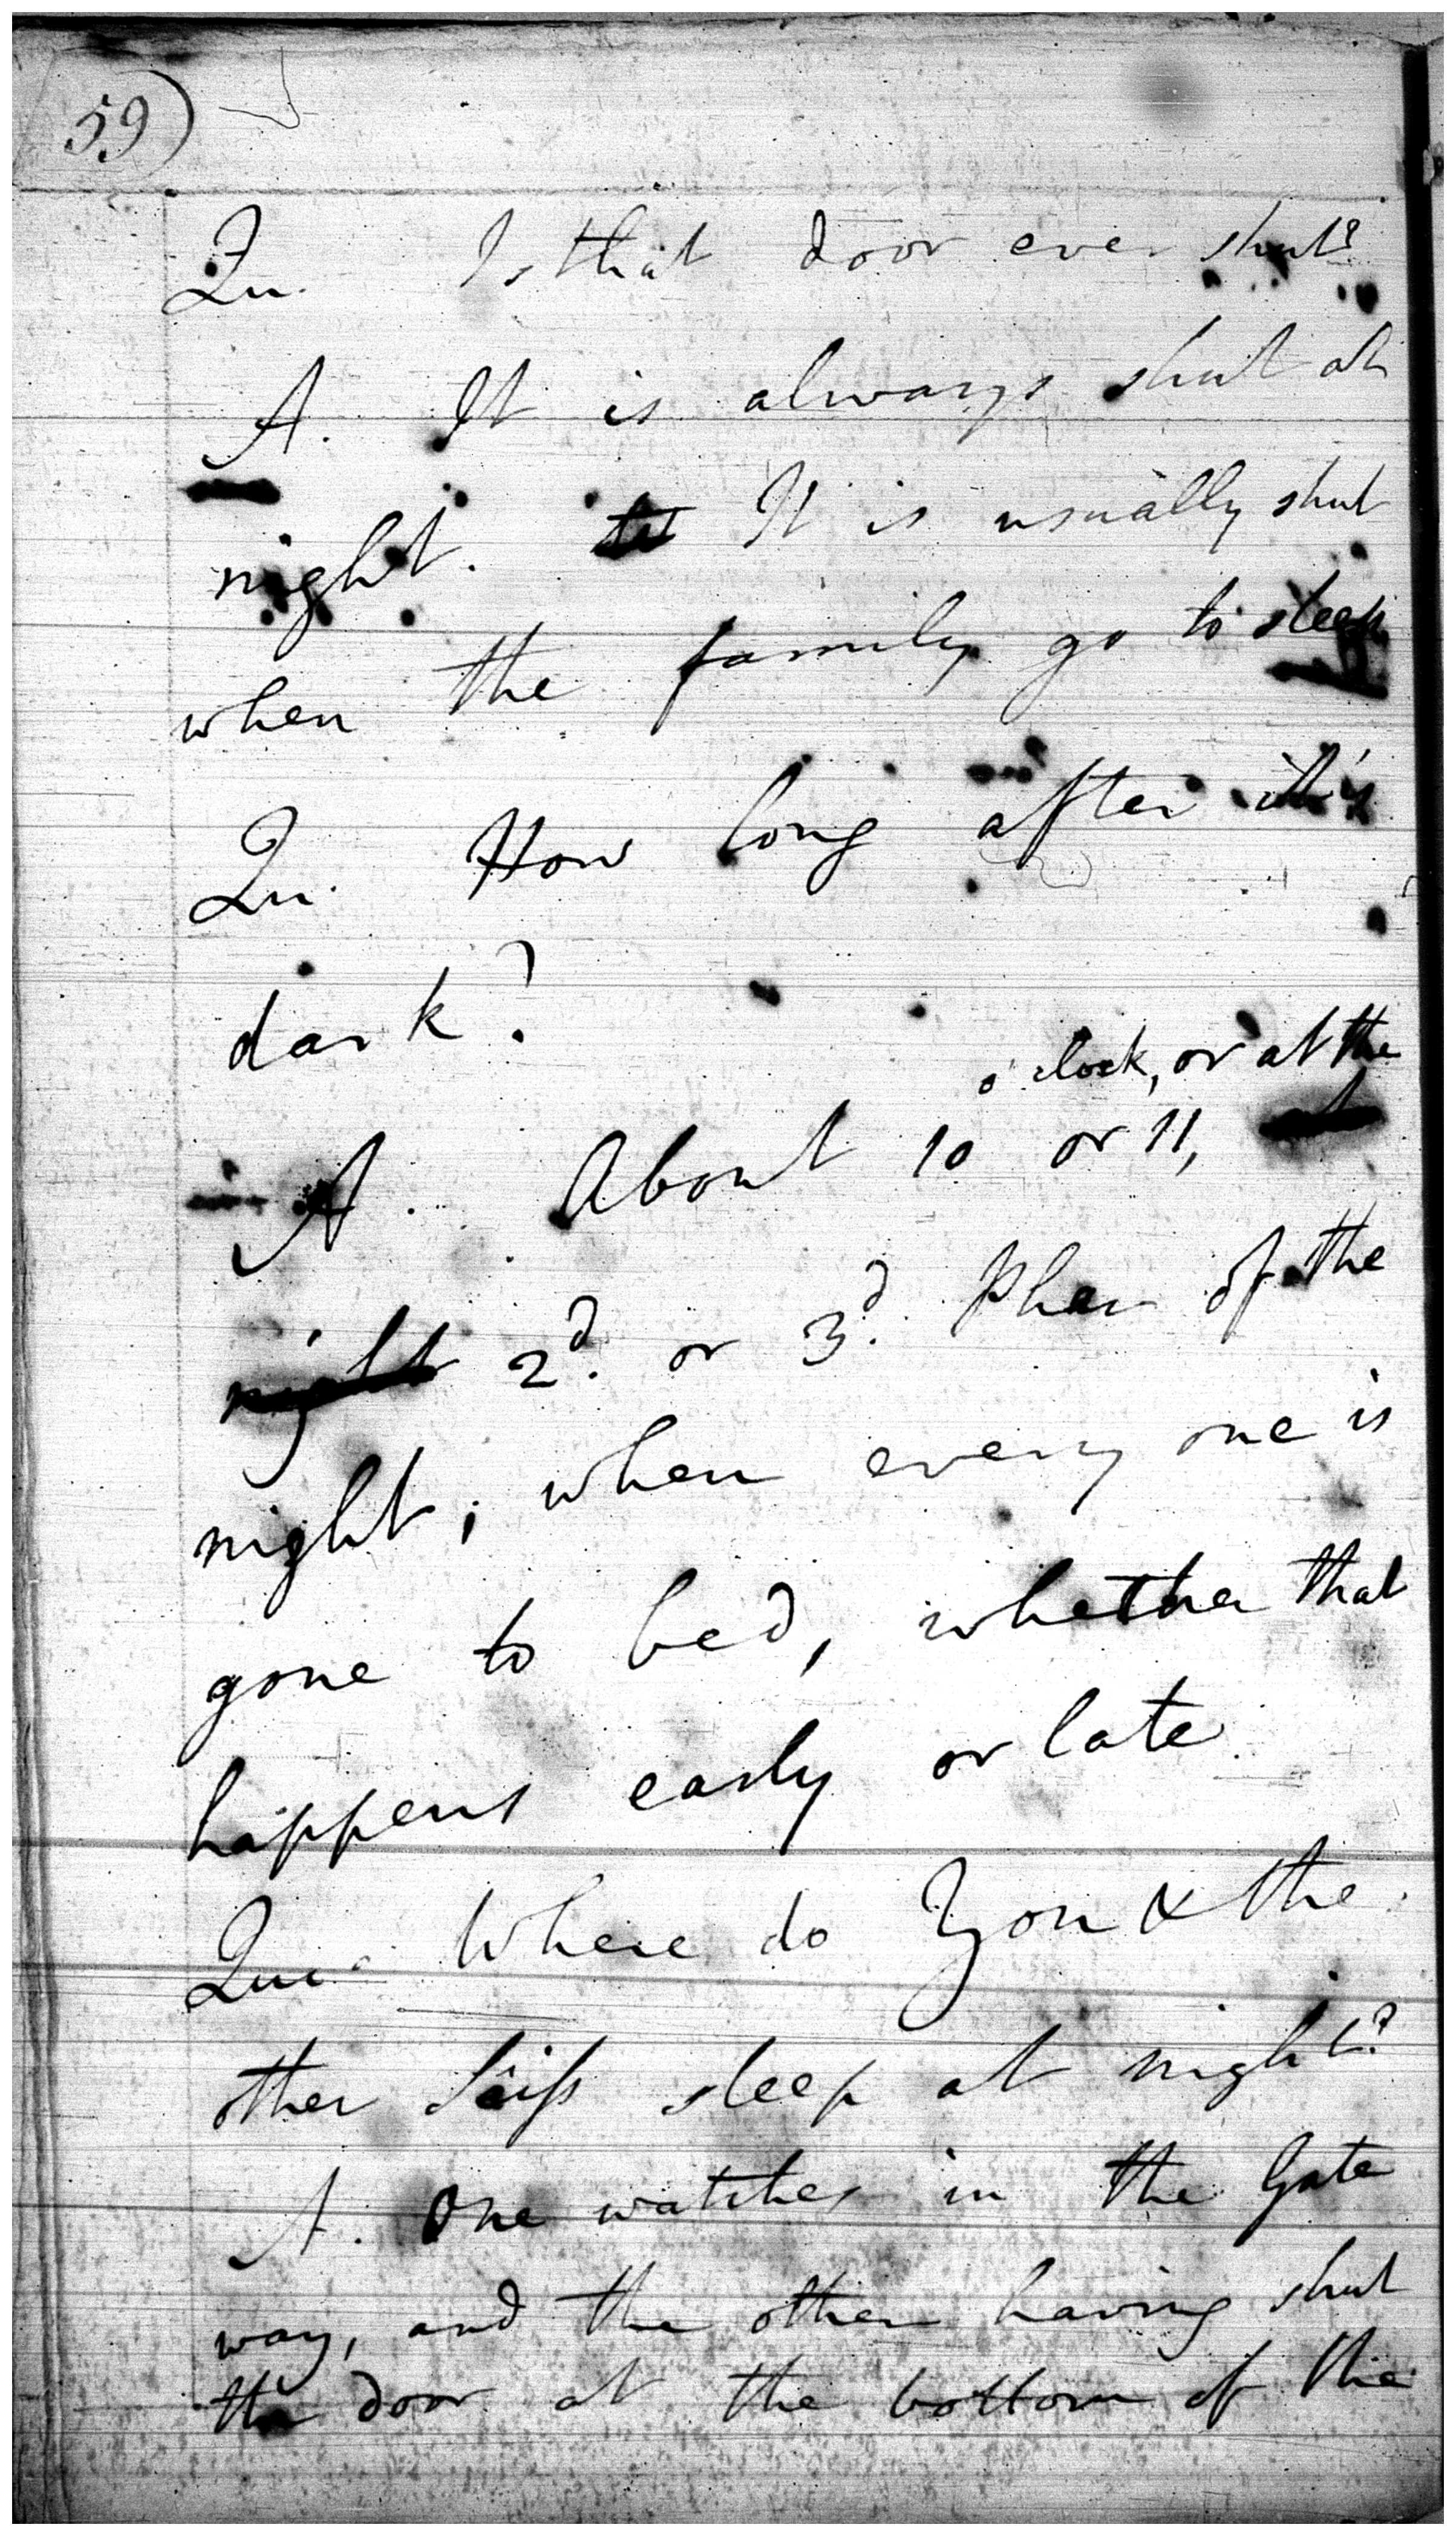 59)
Qu. Is that door ever shut?
A. It is always shut at
night. It is usually shut
when the family go to sleep
Qu. How long after it is
dark?
o'clock, or at the
A. About 10 or 11,
night 2d. or 3d. Pher of the
night, when every one is
gone to bed, whether that
happens early or late.
Que. Where do You & the
other Sâiss sleep at night?
A. One watches in the Gate
way, and the other having shut
the door at the bottom of the